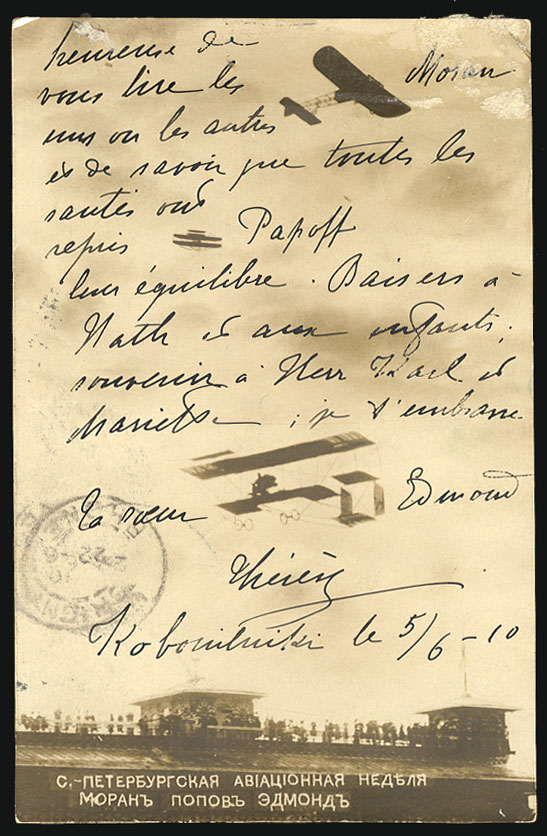 heureuse de
vous lire les
uns ou les autres
et de savoir que toutes les
santés ont
repris
leur équilibre. Baisers à
Nath et aux enfants.
souvenir à Herr Karl et
Mariette ; je t'embrasse
Ta sœur
Thérèse
le 5/6-10
Moran
Papoff
Edmond
С.-ПЕТЕРБУРГСКАЯ АВIАЦIОННАЯ НЕДѢЛЯ
МОРАНЪ ПОПОВЪ ЭДМОНДЪ